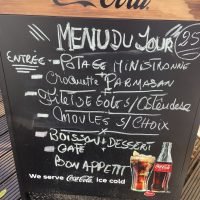 Coca-Cola
MENU DU JOUR 25
ENTRÉE - POTAGE MINISTRONNE
- CROQUETTE PARMASAN
- MOULES S/CHOIX
BOISSON + DESSERT
CAFÉ
BON APPETIT
We serve Coca-Cola ice cold
Coca-Cola